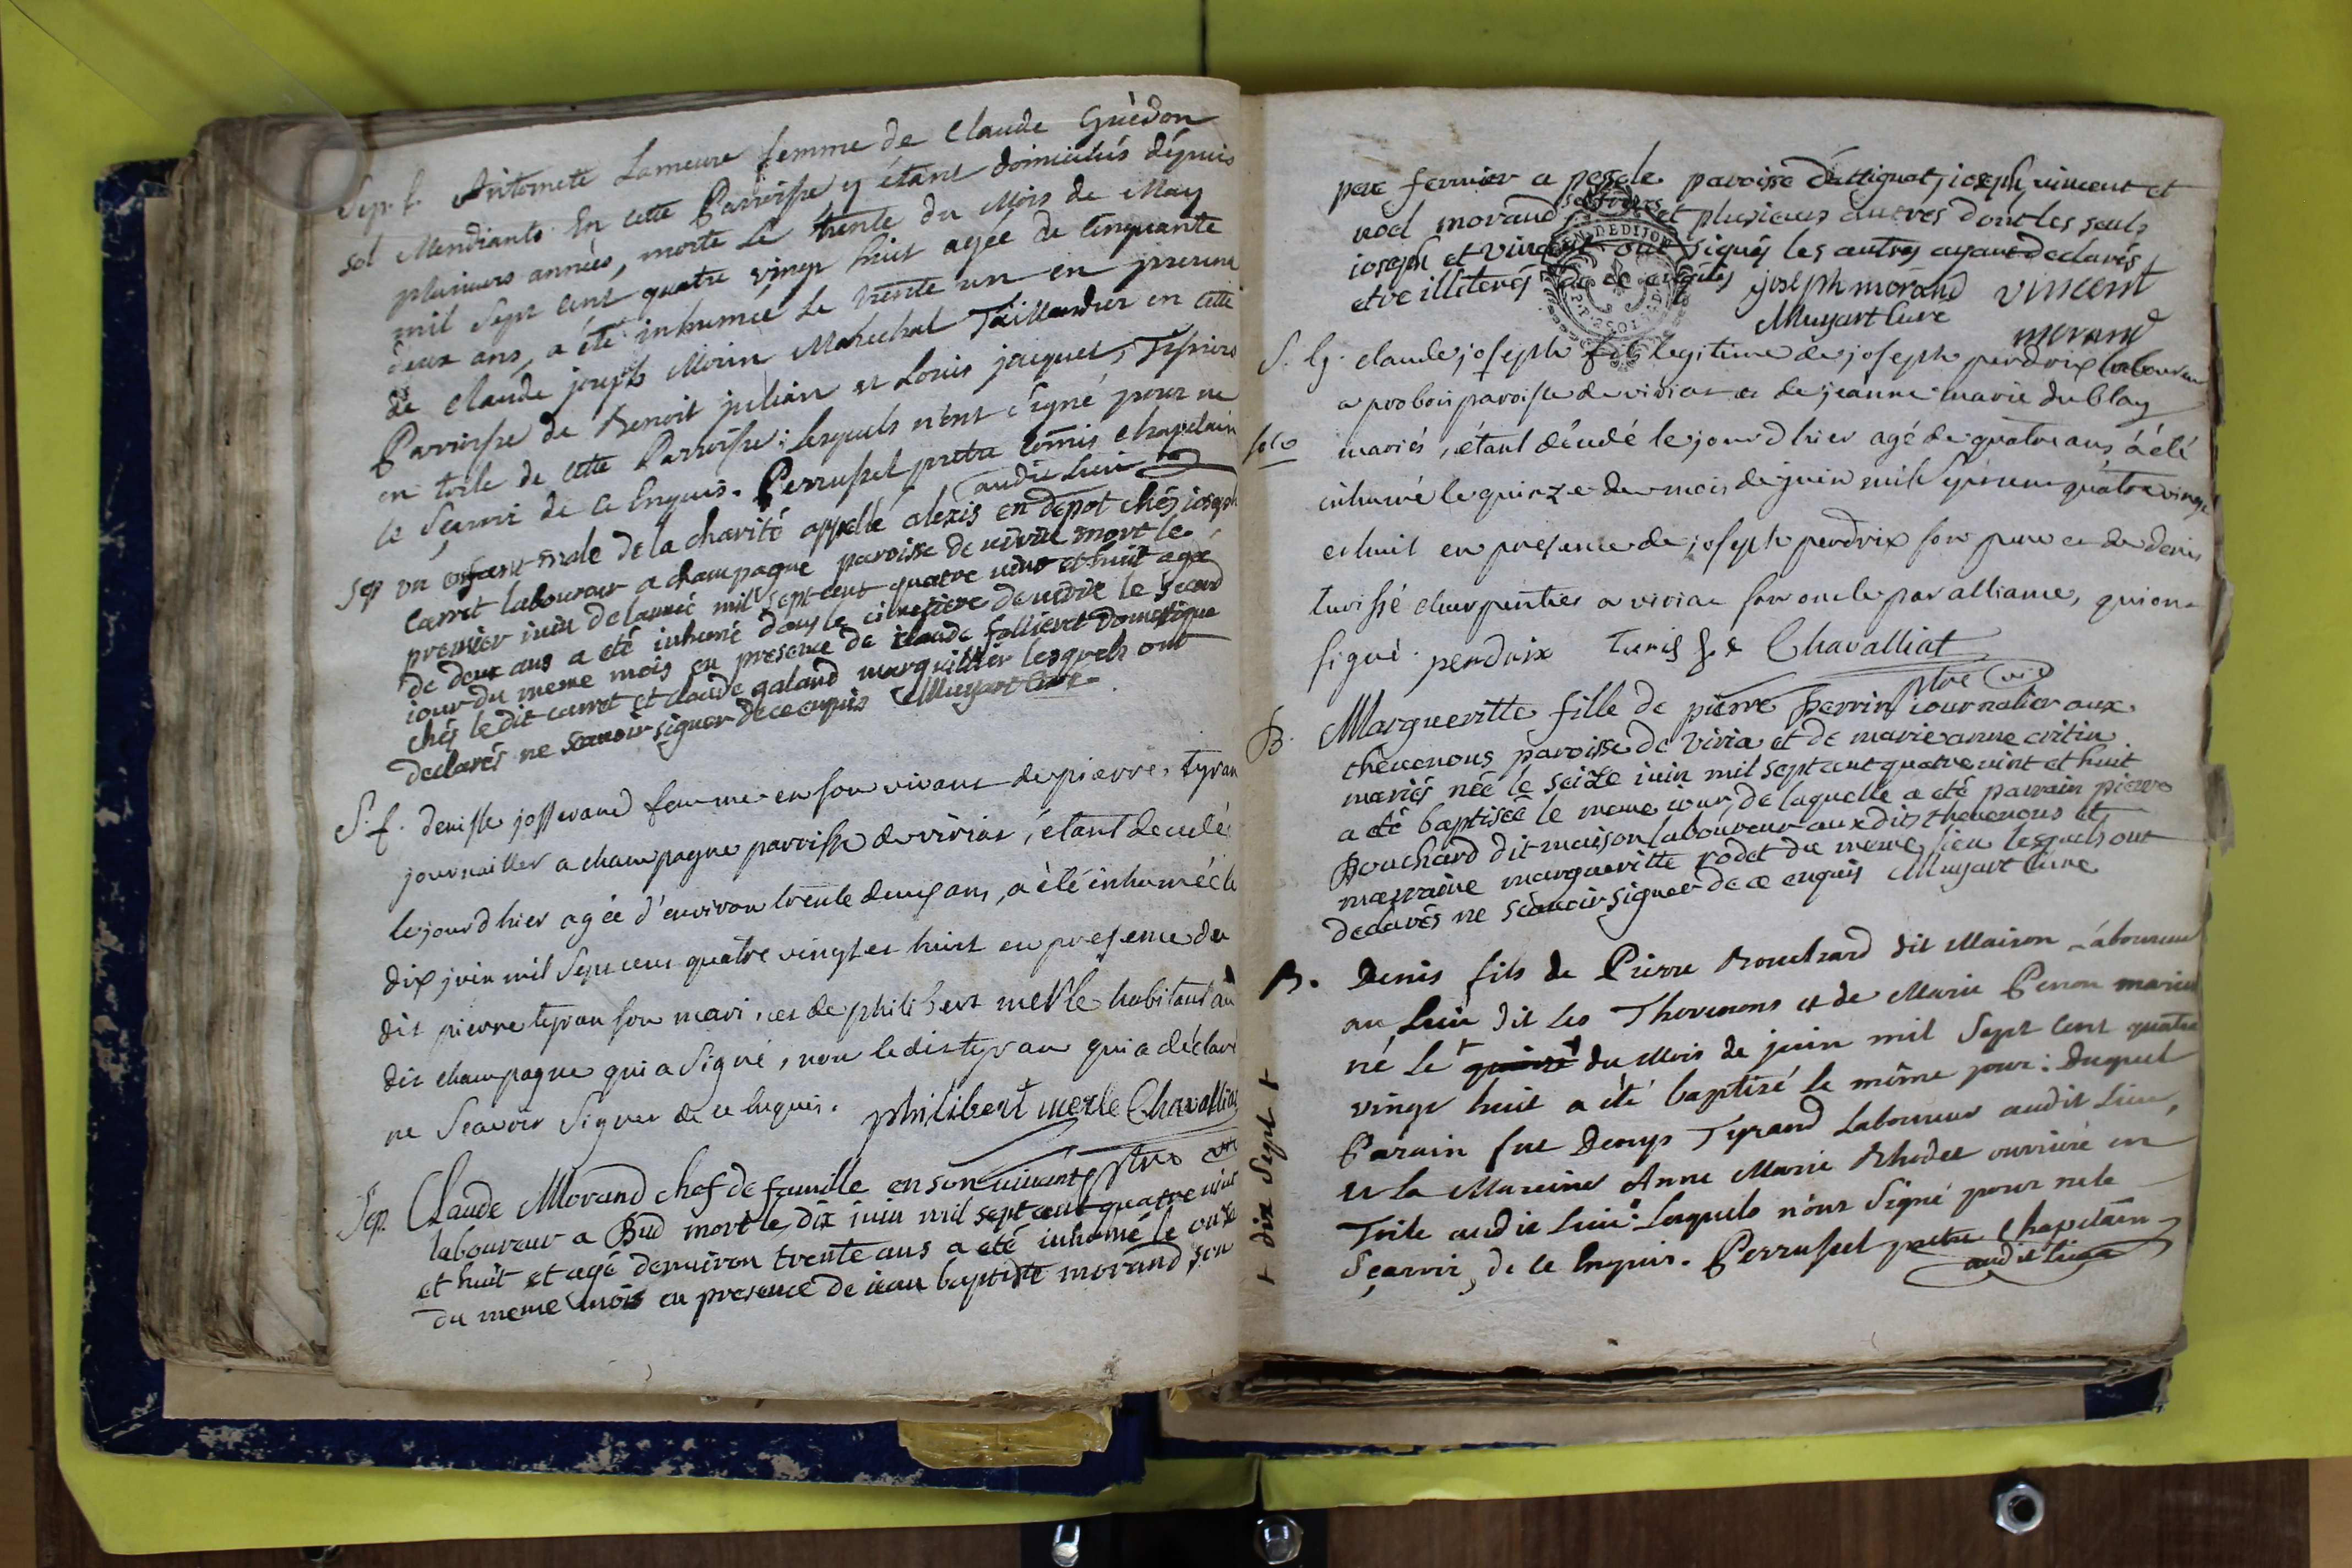 Sep. f. Antoinete Lameure femme de Claude Guèdon
sol Mendiants En cette Parroisse y étant domiciliés dépuis
plusieurs années, morte Le trente du Mois de May
mil sept cent quatre vingt huit agée de Cinquante
deux ans, a été inhumée Le trente un en presence
de Claude joseph Morin Maréchal Taillandier en cette
Parroisse de Benoit julian et Louis jacquet, Tissiers
en toile de cette Parroisse: Lesquels n'ont signé pour ne
le sçavoir de ce Enquis. Perrussel pretre Comis Chapelain
audit Lieu
Sep un enfant male de la charité appellé alexis en depot chés ioseph
Carret laboureur a champagne paroisse de mort le
premier iuin de lannée mil sept cent quatre vint et huit agé
de deux ans a été inhumé dans le cimetiere de le second
iour du meme mois en presence de claude follieret domestique
chés le dit carret et claude galand marguillier lesquels ont
declarés ne scavoir signer de ce enquis Muyart Cure
S. f. denisse josserand femme en son vivant de pierre tyran
journallier a champagne parroisse de viriat, étant decedée
le jourd'hier agée d'environ trente deux ans, a èté inhumée le
dix juin mil sept cent quatre vingt et huit en presence du
dit pierre tyran son mari, et de philibert merle habitant au
dit champagne qui a signé, non le dit tyran qui a déclaré
ne sçavoir signer de ce enquis. philibert merle Chavalliat
ptre vic
Sep. Claude Morand chef de famille en son vivant
laboureur a Bud mort le dix iuin mil sept cent quatre vint
et huit et agé denviron trente ans a eté inhumé le onze
du meme mois en presence de iean baptiste morand son
pere fermier a paroisse dattignat, ioseph, vincent et
noel morand ses freres et plusieurs autres dont les seuls
ioseph et vincent ont signés les autres ayant declarés
etre illiterés de ce enquis joseph morand vincent
Muyart Cure morand
S. G. claude joseph fils legitime de joseph perdrix laboureur
a probois paroisse de viriat et de jeanne marie dublay
mariés, étant décedé le jourd'hier agé de quatre ans à èté
inhumé le quinze du mois de juin mil sept cent quatre vingt
et huit en presence de joseph perdrix son pere et de denis
turissé charpentier a viriat son oncle par alliance, qui ont
signé. perdrix Chavalliat
ptre vic
B. Margueritte fille de pierre perrin iournalier aux
thevenous paroisse de viria et de marie anne
mariés née le seize iuin mil sept cent quatre vint et huit
a eté baptisée le meme iour, de laquelle a eté parrain pierre
Bouchard dit maison laboureur aux dits thevenous et
marraine margueritte rodet du meme lieu lesquels ont
declarés ne scavoir signer de ce enquis Muyart Cure
B. Denis fils de Pierre Bouchard dit Maison Laboureur
au Lieu dit Les Thevenons et de Marie Penon mariés
né Le + quinze + du Mois de juin mil sept cent quatre
vingt huit a été baptisé Le même jour: Duquel
Parain fut Denys Tyrand Laboureur audit Lieu,
et la Mareine Anne Marie Rhodet ouvriere en
Toile audit Lieu: Lesquels n'ont signé pour ne le
sçavoir, de ce Enquis. Perrussel pretre Chapelain
audit Lieu
+ dix sept +